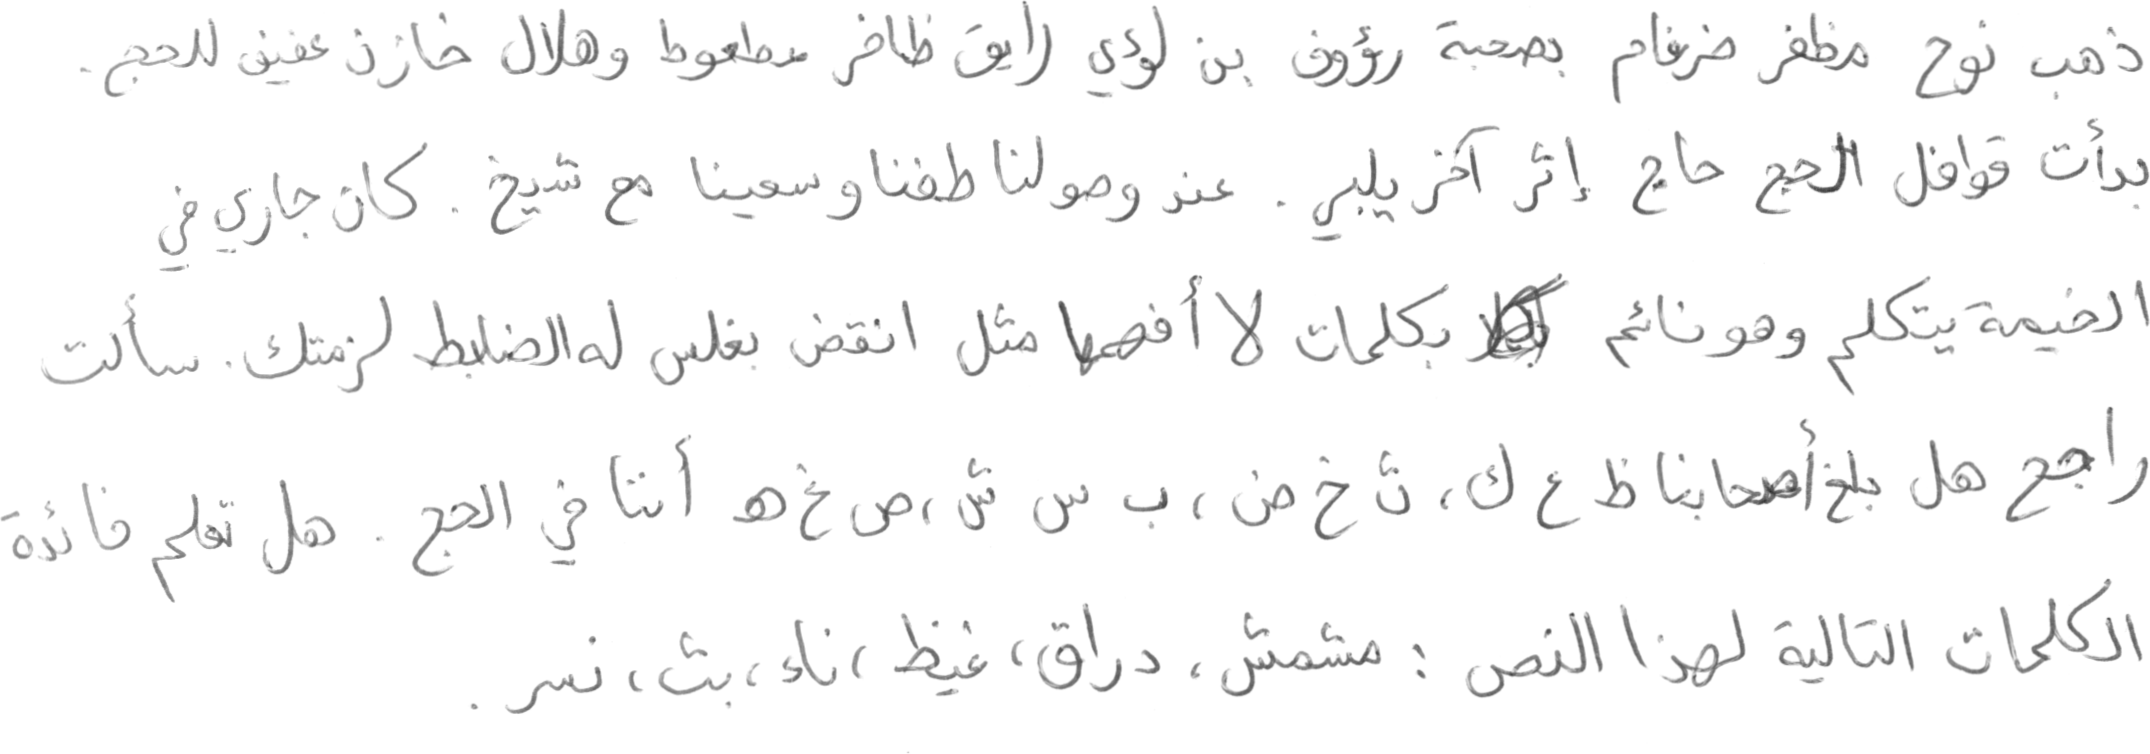 ذهب نوح مظفر ضرغام بصحبة رؤوف بن لؤي رايق ظافر عطعوط وهلال خازن عفيف للحج.
بدأت قوافل الحج حاج إثر آخر يلبي. عند وصولنا طفنا وسعينا مع شيخ. كان جاري في
الخيمة يتكلم وهو نائم بكلمات لا أفهمها مثل انقض بغلس له الضابط لزمتك. سألت
راجح هل بلغ أصحابنا ظ ع ك، ث خ ض، ب س ش، ص غ ه أننا في الحج. هل تعلم فائدة
الكلمات التالية لهذا النص: مشمش، دراق، غيظ، ناء، بث، نسر.